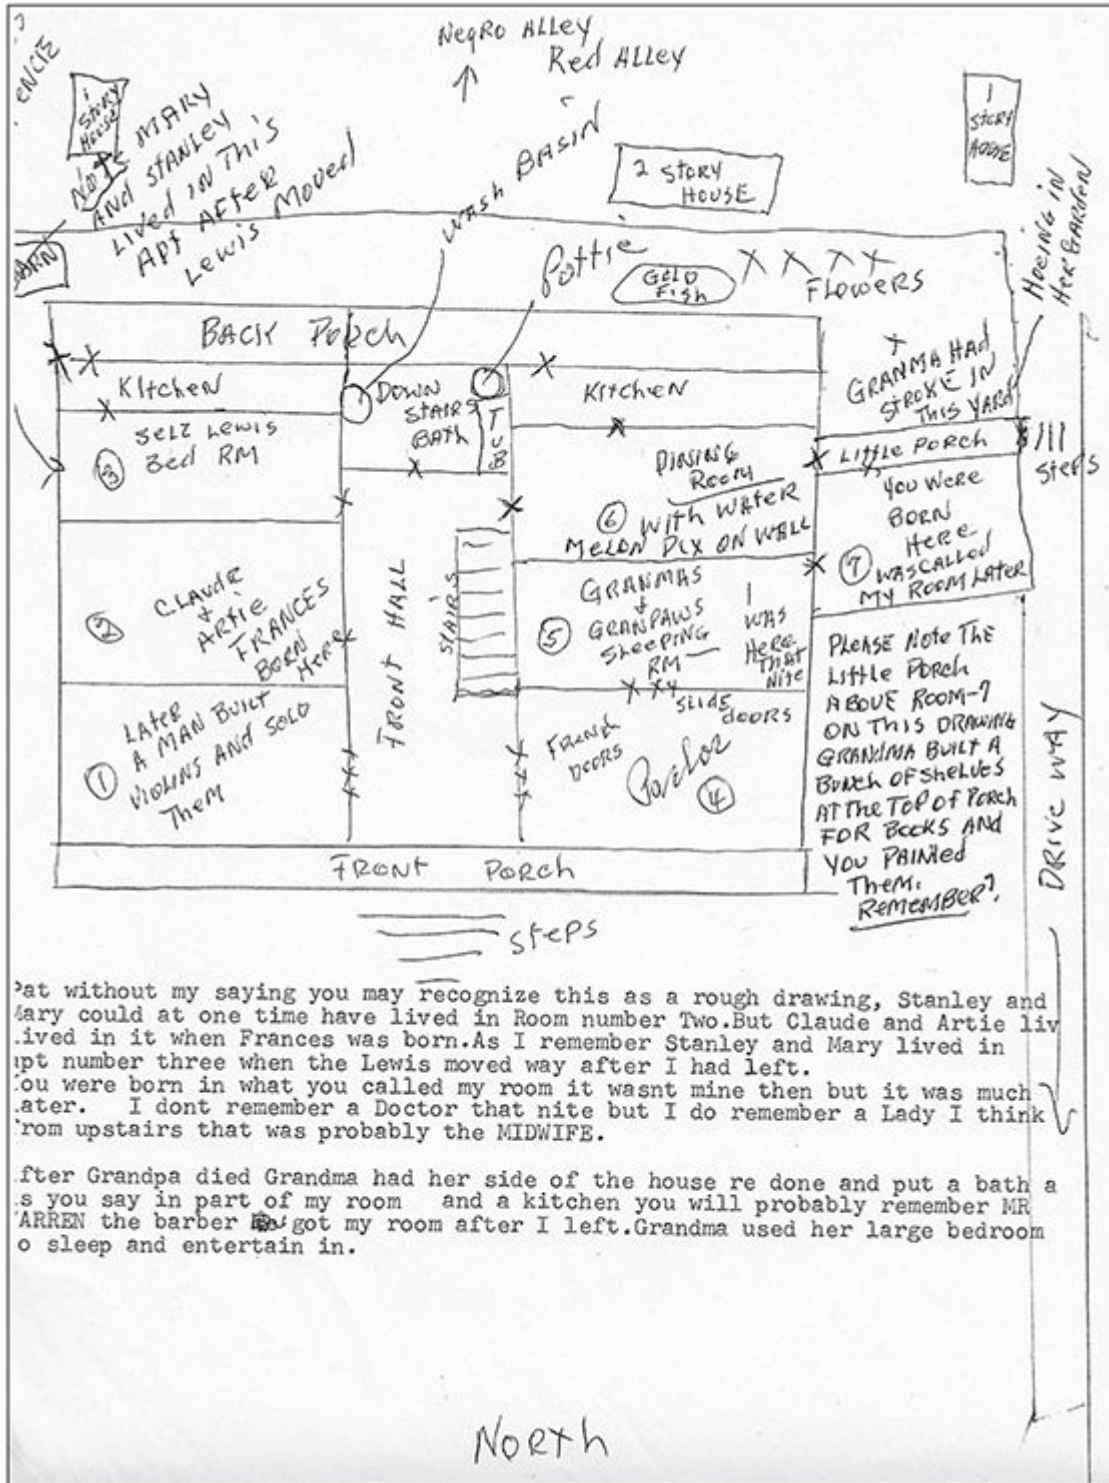 ENCIE
Negro Alley
Red Alley
1
STORY
HOUSE
NOTE MARY
AND STANLEY
LIVED IN THIS
APT AFTER
LEWIS MOVED
WASH BASIN
2 STORY
HOUSE
1
STORY
HOEING IN
HER GARDEN
BARN
Pottie
GOLD
FISH
X X X X
FLOWERS
BACK PORCH
KItchen
DOWN
STAIRS
BATH
TUB
KItchen
GRANMA HAD
STROKE IN
THIS YARD
SELZ LEWIS
Bed RM
3
DINING
ROOM
6 WITH WATER
MELON PIX ON WALL
LITTLE PORCH
STEPS
YOU WERE
BORN
HERE
7 WAS CALLED
MY ROOM LATER
2
CLAUDE
+
ARTIE
FRANCES
BORN
HERE
FRONT HALL
STAIRS
5
GRANMAS
+
GRANPAWS
SLEEPING
RM
I
WAS
HERE
THAT
NITE
SLIDE
DOORS
1
LATER
A MAN BUILT
VIOLINS AND SOLD
THEM
FRENCH
DOORS
Parlor
4
PLEASE NOTE THE
LITTLE PORCH
ABOVE ROOM-7
ON THIS DRAWING
GRANDMA BUILT A
BUNCH OF SHELVES
AT THE TOP OF PORCH
FOR BOOKS AND
YOU PAINTED
THEM.
REMEMBER?
DRIVE WAY
FRONT PORCH
STEPS
Pat without my saying you may recognize this as a rough drawing, Stanley and
Mary could at one time have lived in Room number Two.But Claude and Artie liv
lived in it when Frances was born.As I remember Stanley and Mary lived in
apt number three when the Lewis moved way after I had left.
You were born in what you called my room it wasnt mine then but it was much
later. I dont remember a Doctor that nite but I do remember a Lady I think
from upstairs that was probably the MIDWIFE.
After Grandpa died Grandma had her side of the house re done and put a bath a
as you say in part of my room and a kitchen you will probably remember MR
WARREN the barber got my room after I left.Grandma used her large bedroom
to sleep and entertain in.
NORTH